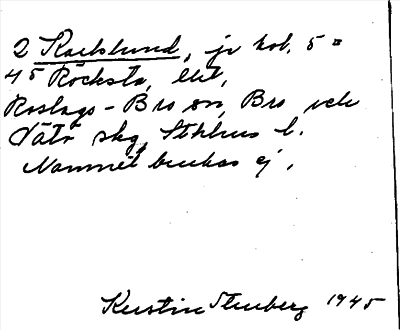 2 Karlslund, jr kol. 5 ¤
45 Röcksta, lht,
Roslags-Bro sn, Bro och
Vätö skg, Sthlms l.
Namnet brukas ej.
Kerstin Stenberg 1945